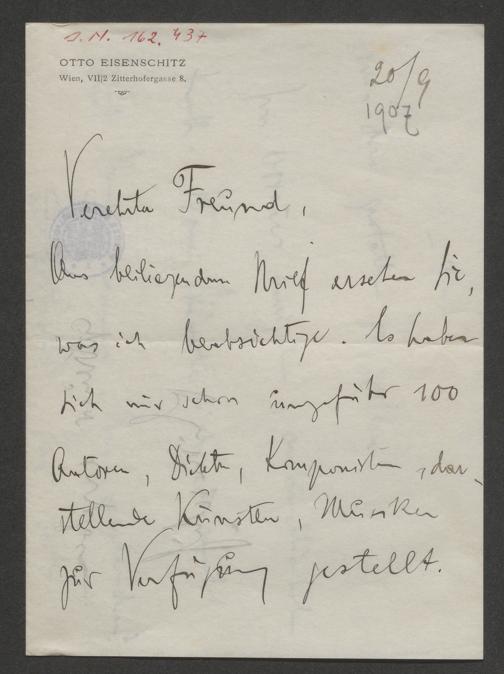 J. N. 162.437
OTTO EISENSCHITZ
Wien, VII/2 Zitterhofergasse 8.
20/9
1907
Verehrter Freund,
Aus beiliegendem Brief ersehen Sie,
was ich beabsichtige. Es haben
sich mir schon ungefähr 100
Autoren, Dichter, Komponisten, dar-
stellende Künstler, Musiker
zur Verfügung gestellt.